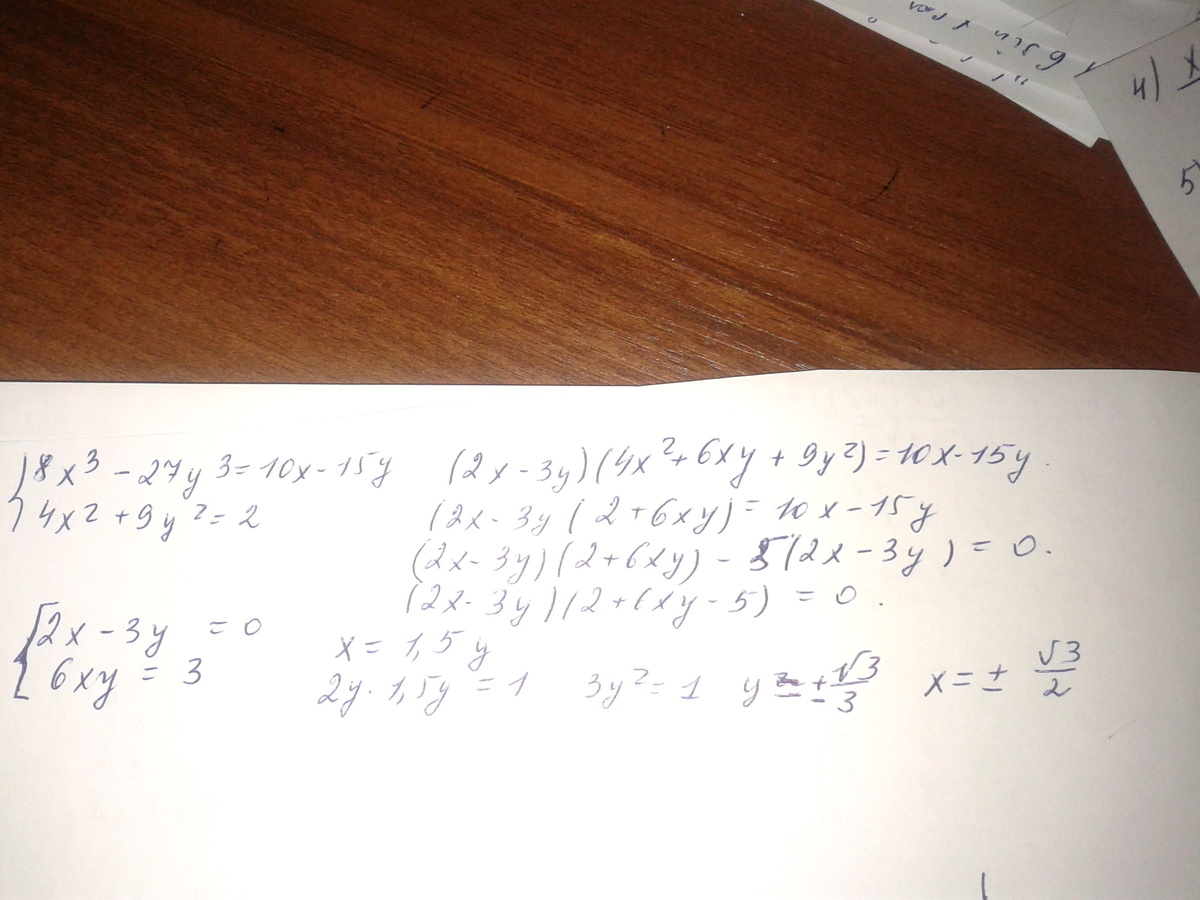 8x³ - 27y3 = 10x - 15y
4x² + 9y² = 2
(2x - 3y)(4x² + 6xy + 9y²) = 10x - 15y.
(2x - 3y(2 + 6xy) = 10x - 15y
(2x - 3y)(2 + 6xy) - 5(2x - 3y) = 0.
(2x - 3y)(2 + 6xy - 5) = 0.
2x - 3y = 0
6xy = 3
x = 1,5y
2y · 1,5y = 1 3y² = 1 y = ±√3/3 x = ± √3/2
4) x
5